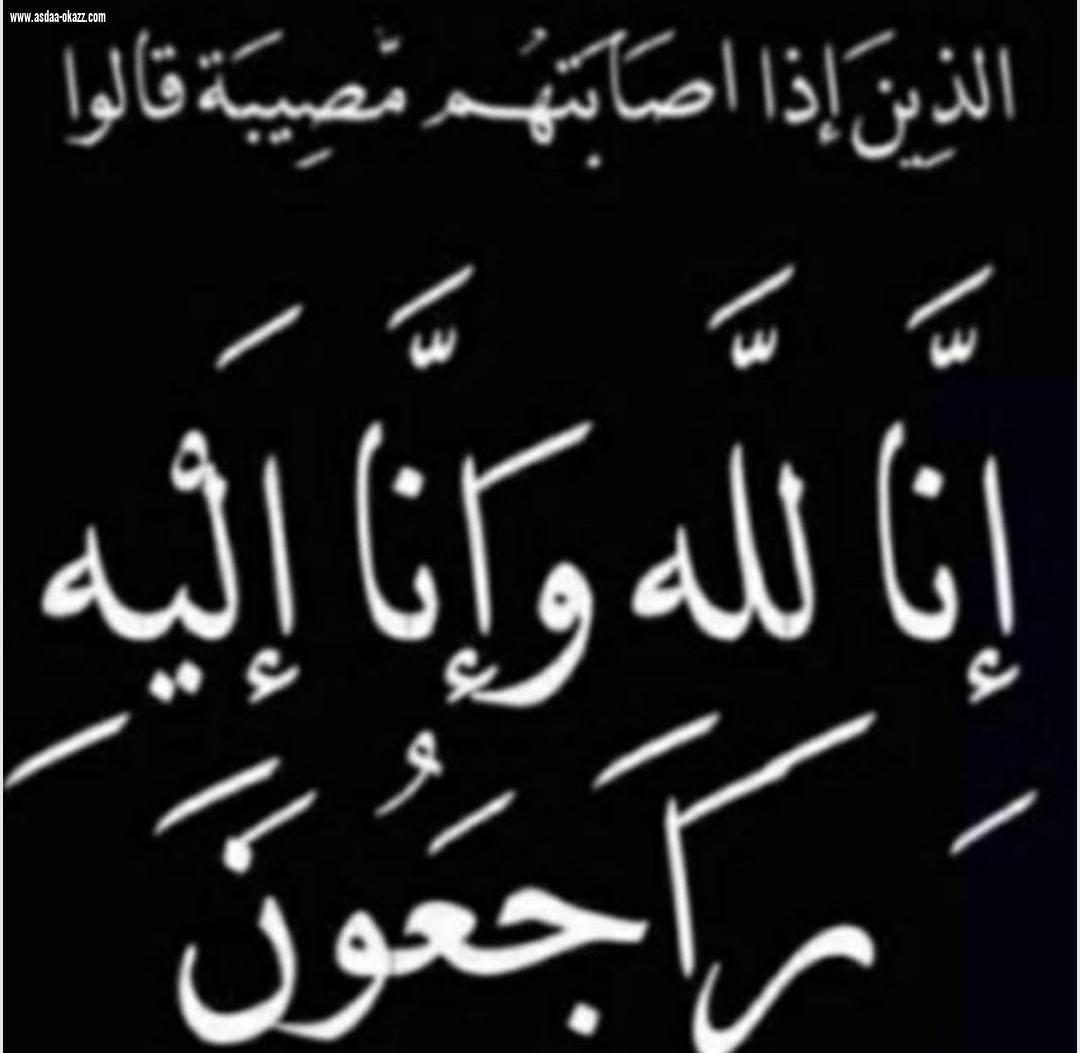 www.asdaa-okazz.com
الذِينَ إذا اصَابَتهُم مّصِيبَة قالوا
إنَّا للَّه وَإنَّا إلَيْهِ
رَاجَعُونَ